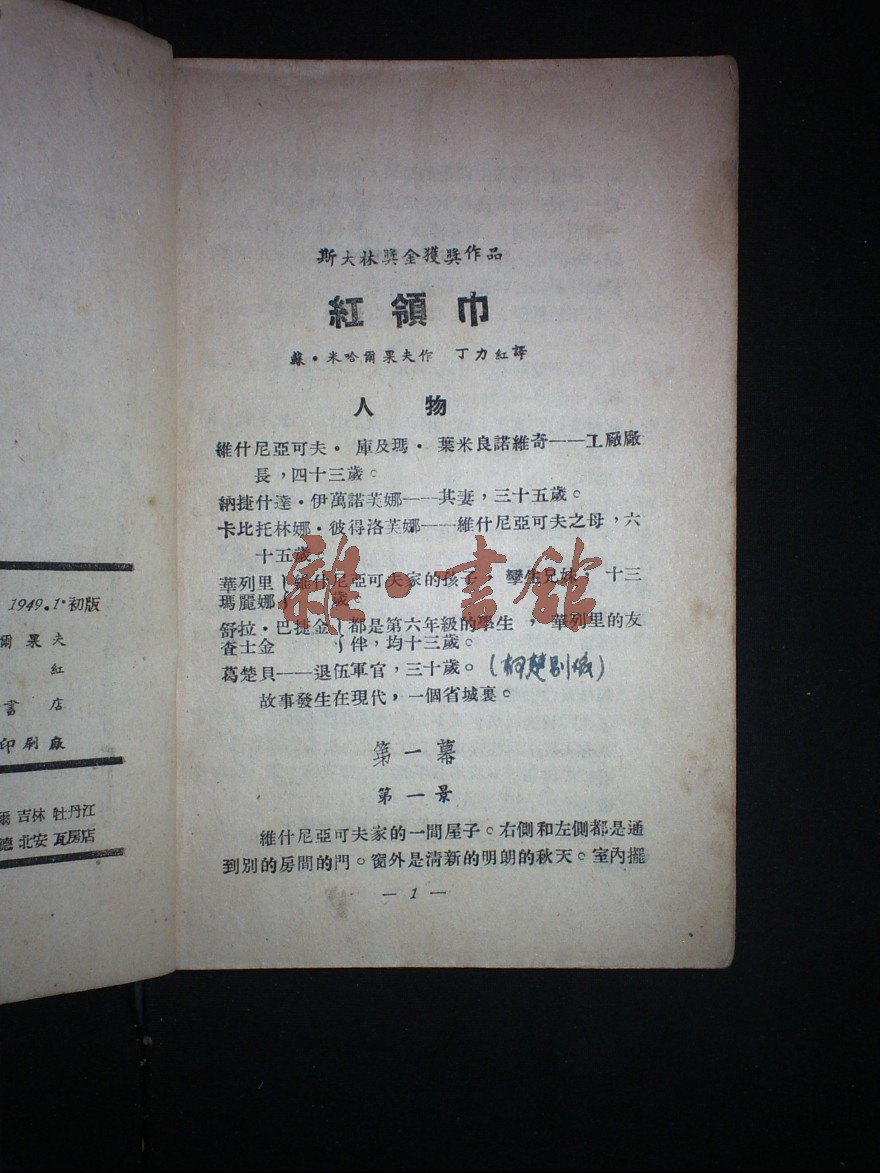 1949.1.初版
爾果夫
紅
書店
印刷廠
爾 吉林 牡丹江
德 北安 瓦房店
斯大林獎金獲獎作品
紅領巾
蘇·米哈爾果夫作 丁力紅譯
人物
維什尼亞可夫·庫及瑪·葉米良諾維奇——工廠廠
長，四十三歲。
納捷什達·伊萬諾芙娜——其妻，三十五歲。
卡比托林娜·彼得洛芙娜——維什尼亞可夫之母，六
十五歲。
華列里}維什尼亞可夫家的孩子 孿生兄妹，十三
瑪麗娜 歲。
舒拉·巴捷金}都是第六年級的學生，華列里的友
查士金 伴，均十三歲。
葛楚貝——退伍軍官，三十歲。(柯楚別依)
故事發生在現代，一個省城裏。
第一幕
第一景
維什尼亞可夫家的一間屋子。右側和左側都是通
到別的房間的門。窗外是清新的明朗的秋天。室內擺
— 1 —
雜·書館